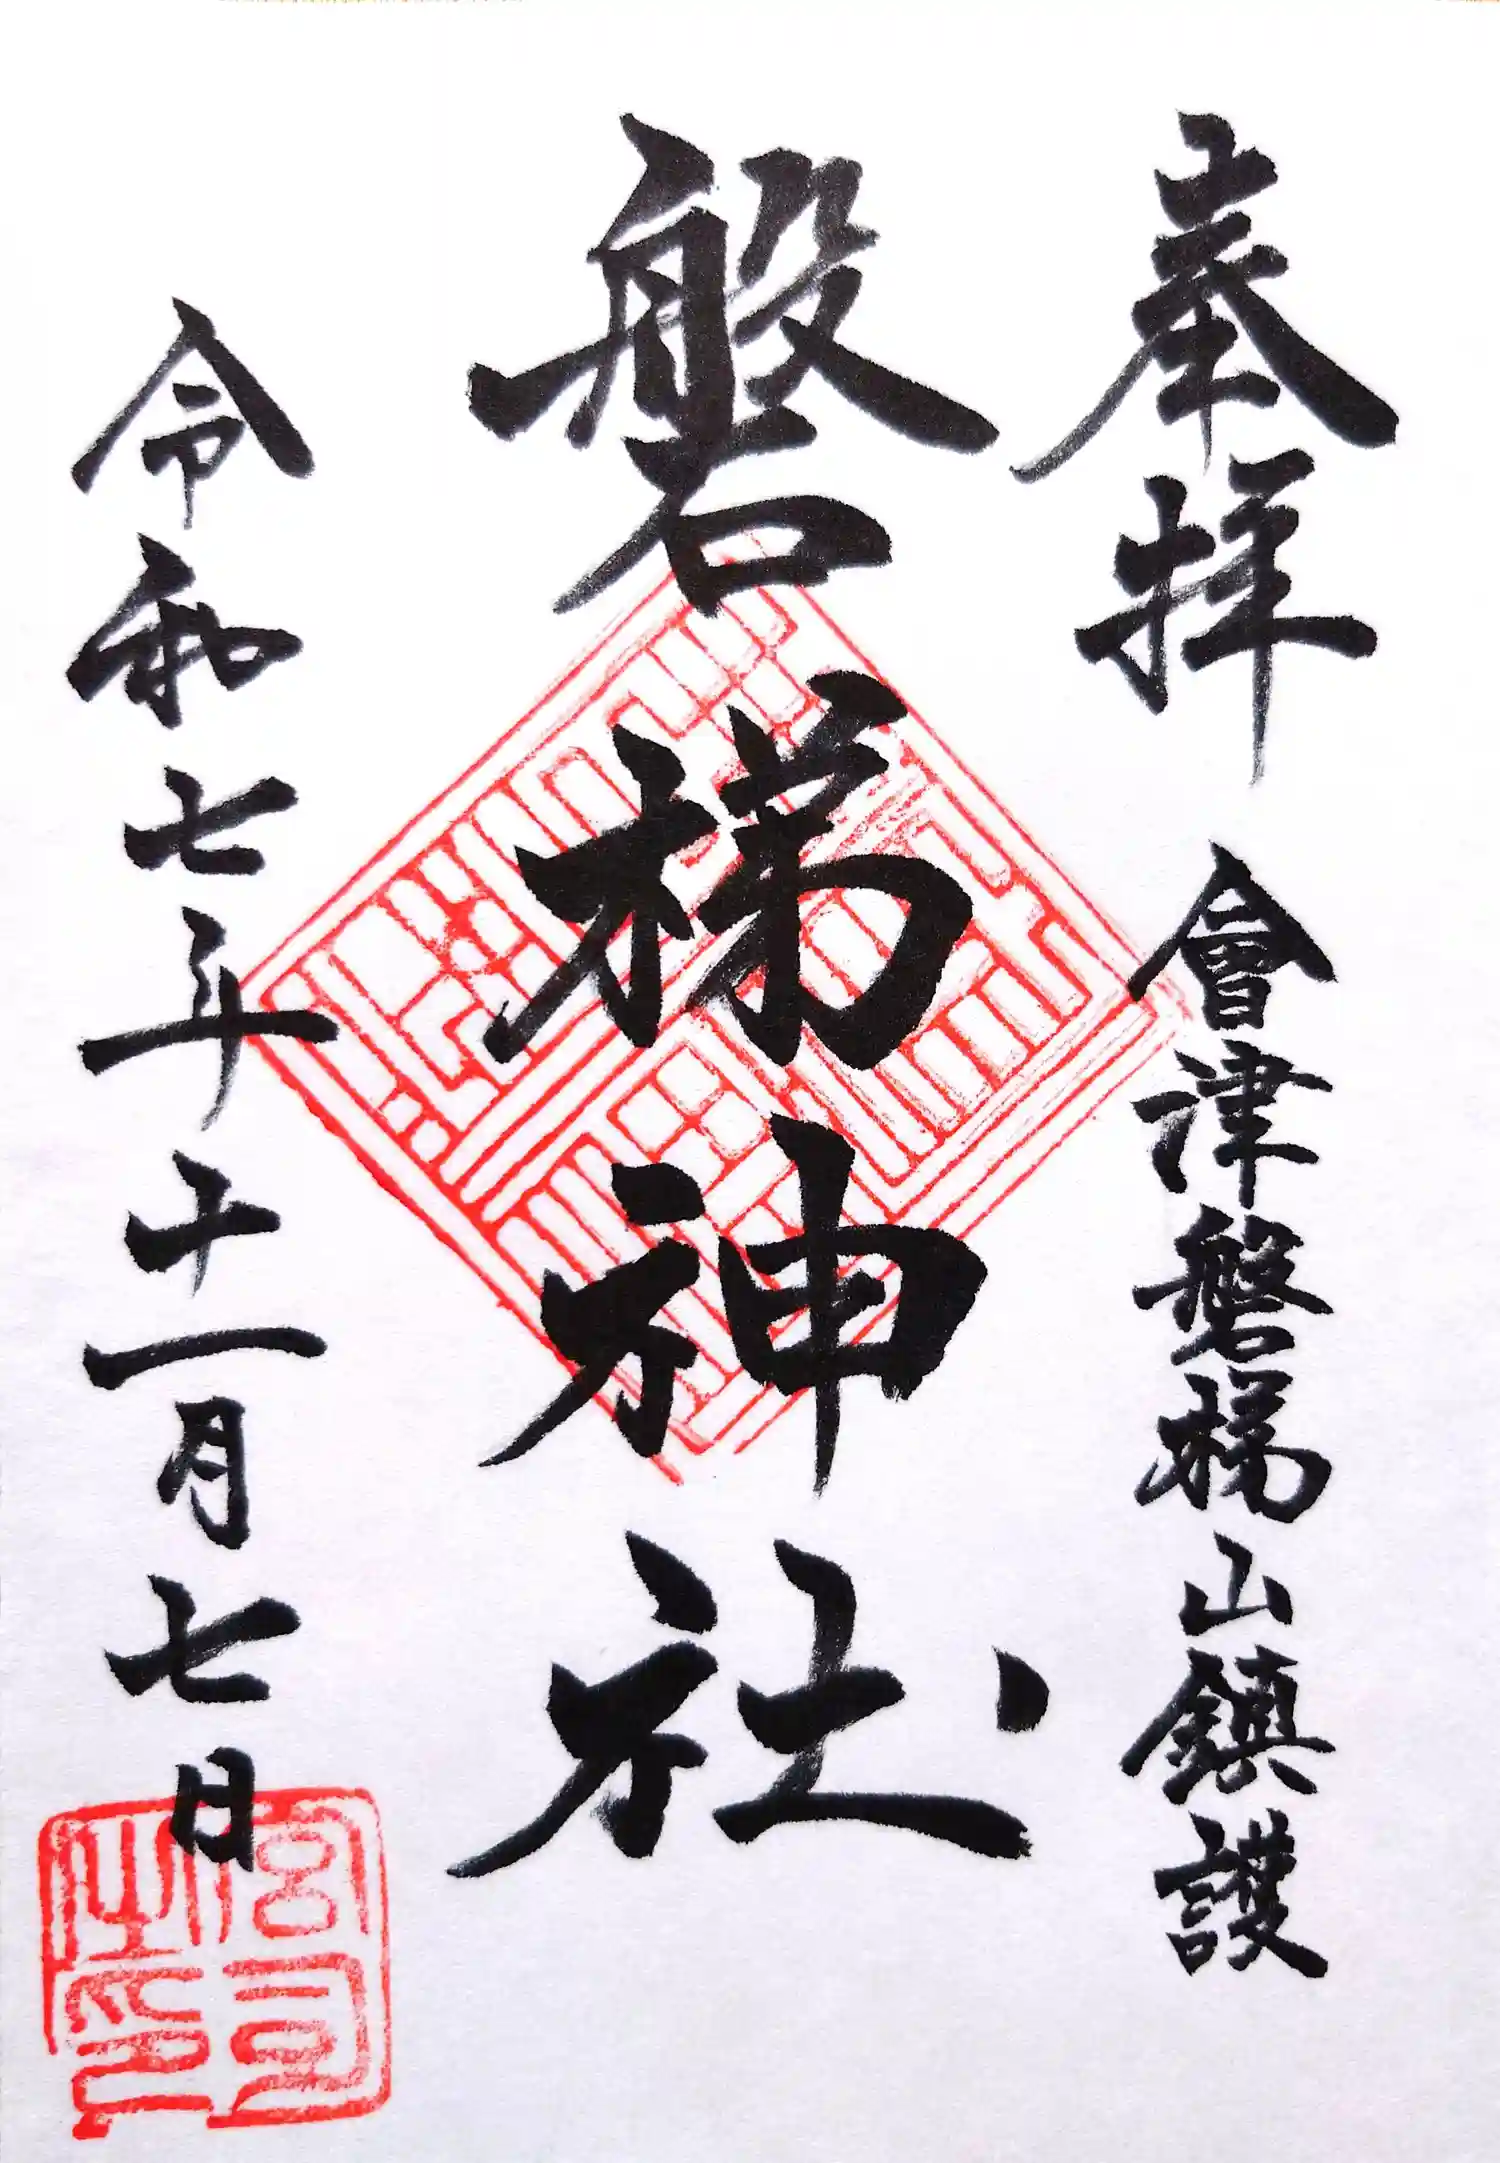 奉拝
會津磐梯山鎮護
磐梯神社
令和七年十一月七日
宮司之印